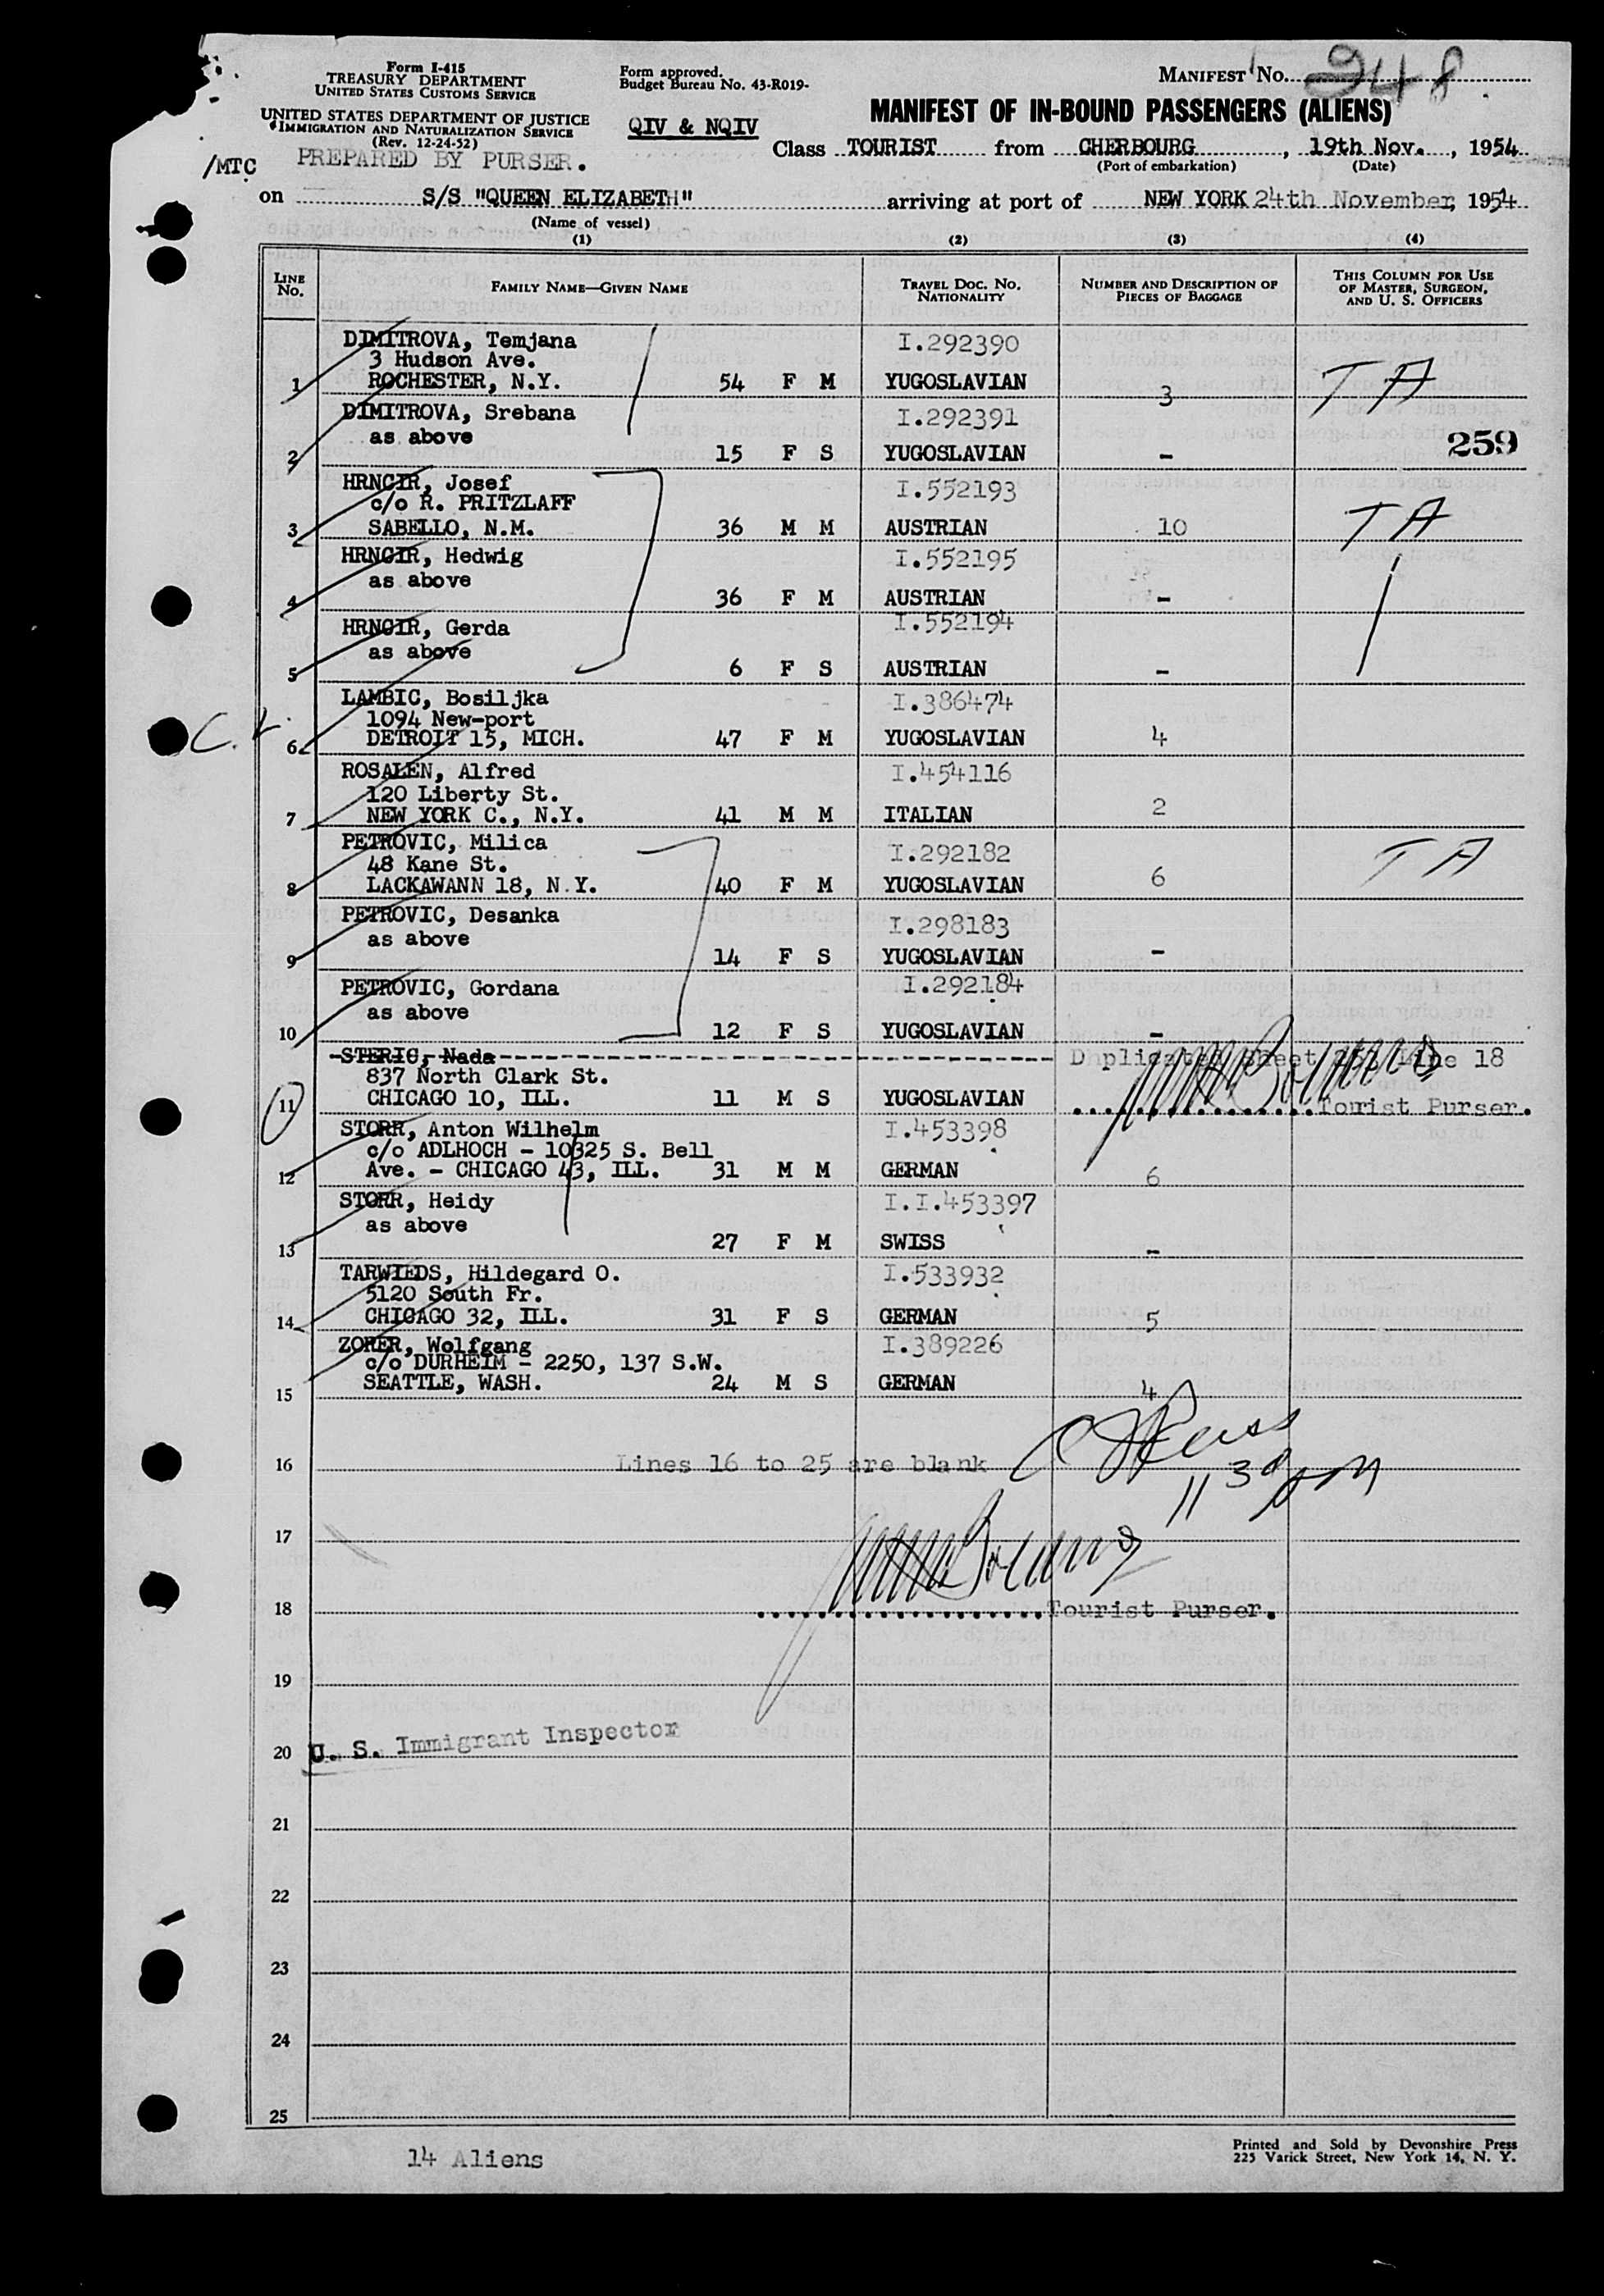 Form I-415
TREASURY DEPARTMENT
UNITED STATES CUSTOMS SERVICE
UNITED STATES DEPARTMENT OF JUSTICE
IMMIGRATION AND NATURALIZATION SERVICE
(Rev. 12-24-52)
/MTC PREPARED BY PURSER.
Form approved.
Budget Bureau No. 43-R019-
QIV & NQIV
MANIFEST NO. 248
MANIFEST OF IN-BOUND PASSENGERS (ALIENS)
Class TOURIST from CHERBOURG, 19th Nov., 1954
(Port of embarkation) (Date)
on S/S "QUEEN ELIZABETH" arriving at port of NEW YORK 24th November, 1954
(Name of vessel)
(1) (2) (3) (4)
LINE No. FAMILY NAME—GIVEN NAME TRAVEL DOC. NO. NATIONALITY NUMBER AND DESCRIPTION OF PIECES OF BAGGAGE THIS COLUMN FOR USE OF MASTER, SURGEON, AND U. S. OFFICERS
DIMITROVA, Temjana I.292390
3 Hudson Ave.
1 ROCHESTER, N.Y. 54 F M YUGOSLAVIAN 3 T A
DIMITROVA, Srebana I.292391
as above 259
2 15 F S YUGOSLAVIAN -
HRNCIR, Josef I.552193
c/o R. PRITZLAFF
3 SABELLO, N.M. 36 M M AUSTRIAN 10 T A
HRNCIR, Hedwig I.552195
as above
4 36 F M AUSTRIAN -
HRNCIR, Gerda I.552194
as above
5 6 F S AUSTRIAN -
LAMBIC, Bosiljka I.386474
1094 New-port
6 DETROIT 15, MICH. 47 F M YUGOSLAVIAN 4
ROSALEN, Alfred I.454116
120 Liberty St.
7 NEW YORK C., N.Y. 41 M M ITALIAN 2
PETROVIC, Milica I.292182
48 Kane St.
8 LACKAWANN 18, N.Y. 40 F M YUGOSLAVIAN 6 T A
PETROVIC, Desanka I.298183
as above
9 14 F S YUGOSLAVIAN -
PETROVIC, Gordana I.292184
as above
10 12 F S YUGOSLAVIAN -
STERIC, Nada Duplicated Sheet Line 18
837 North Clark St.
11 CHICAGO 10, ILL. 11 M S YUGOSLAVIAN Tourist Purser.
STORR, Anton Wilhelm I.453398
c/o ADLHOCH - 10325 S. Bell
12 Ave. - CHICAGO 43, ILL. 31 M M GERMAN 6
STORR, Heidy I.I.453397
as above
13 27 F M SWISS -
TARWIEDS, Hildegard O. I.533932
5120 South Fr.
14 CHICAGO 32, ILL. 31 F S GERMAN 5
ZORER, Wolfgang I.389226
c/o DURHEIM - 2250, 137 S.W.
15 SEATTLE, WASH. 24 M S GERMAN 4
16 Lines 16 to 25 are blank
17
18 Tourist Purser.
19
20 U. S. Immigrant Inspector
21
22
23
24
25
14 Aliens
Printed and Sold by Devonshire Press
225 Varick Street, New York 14, N. Y.